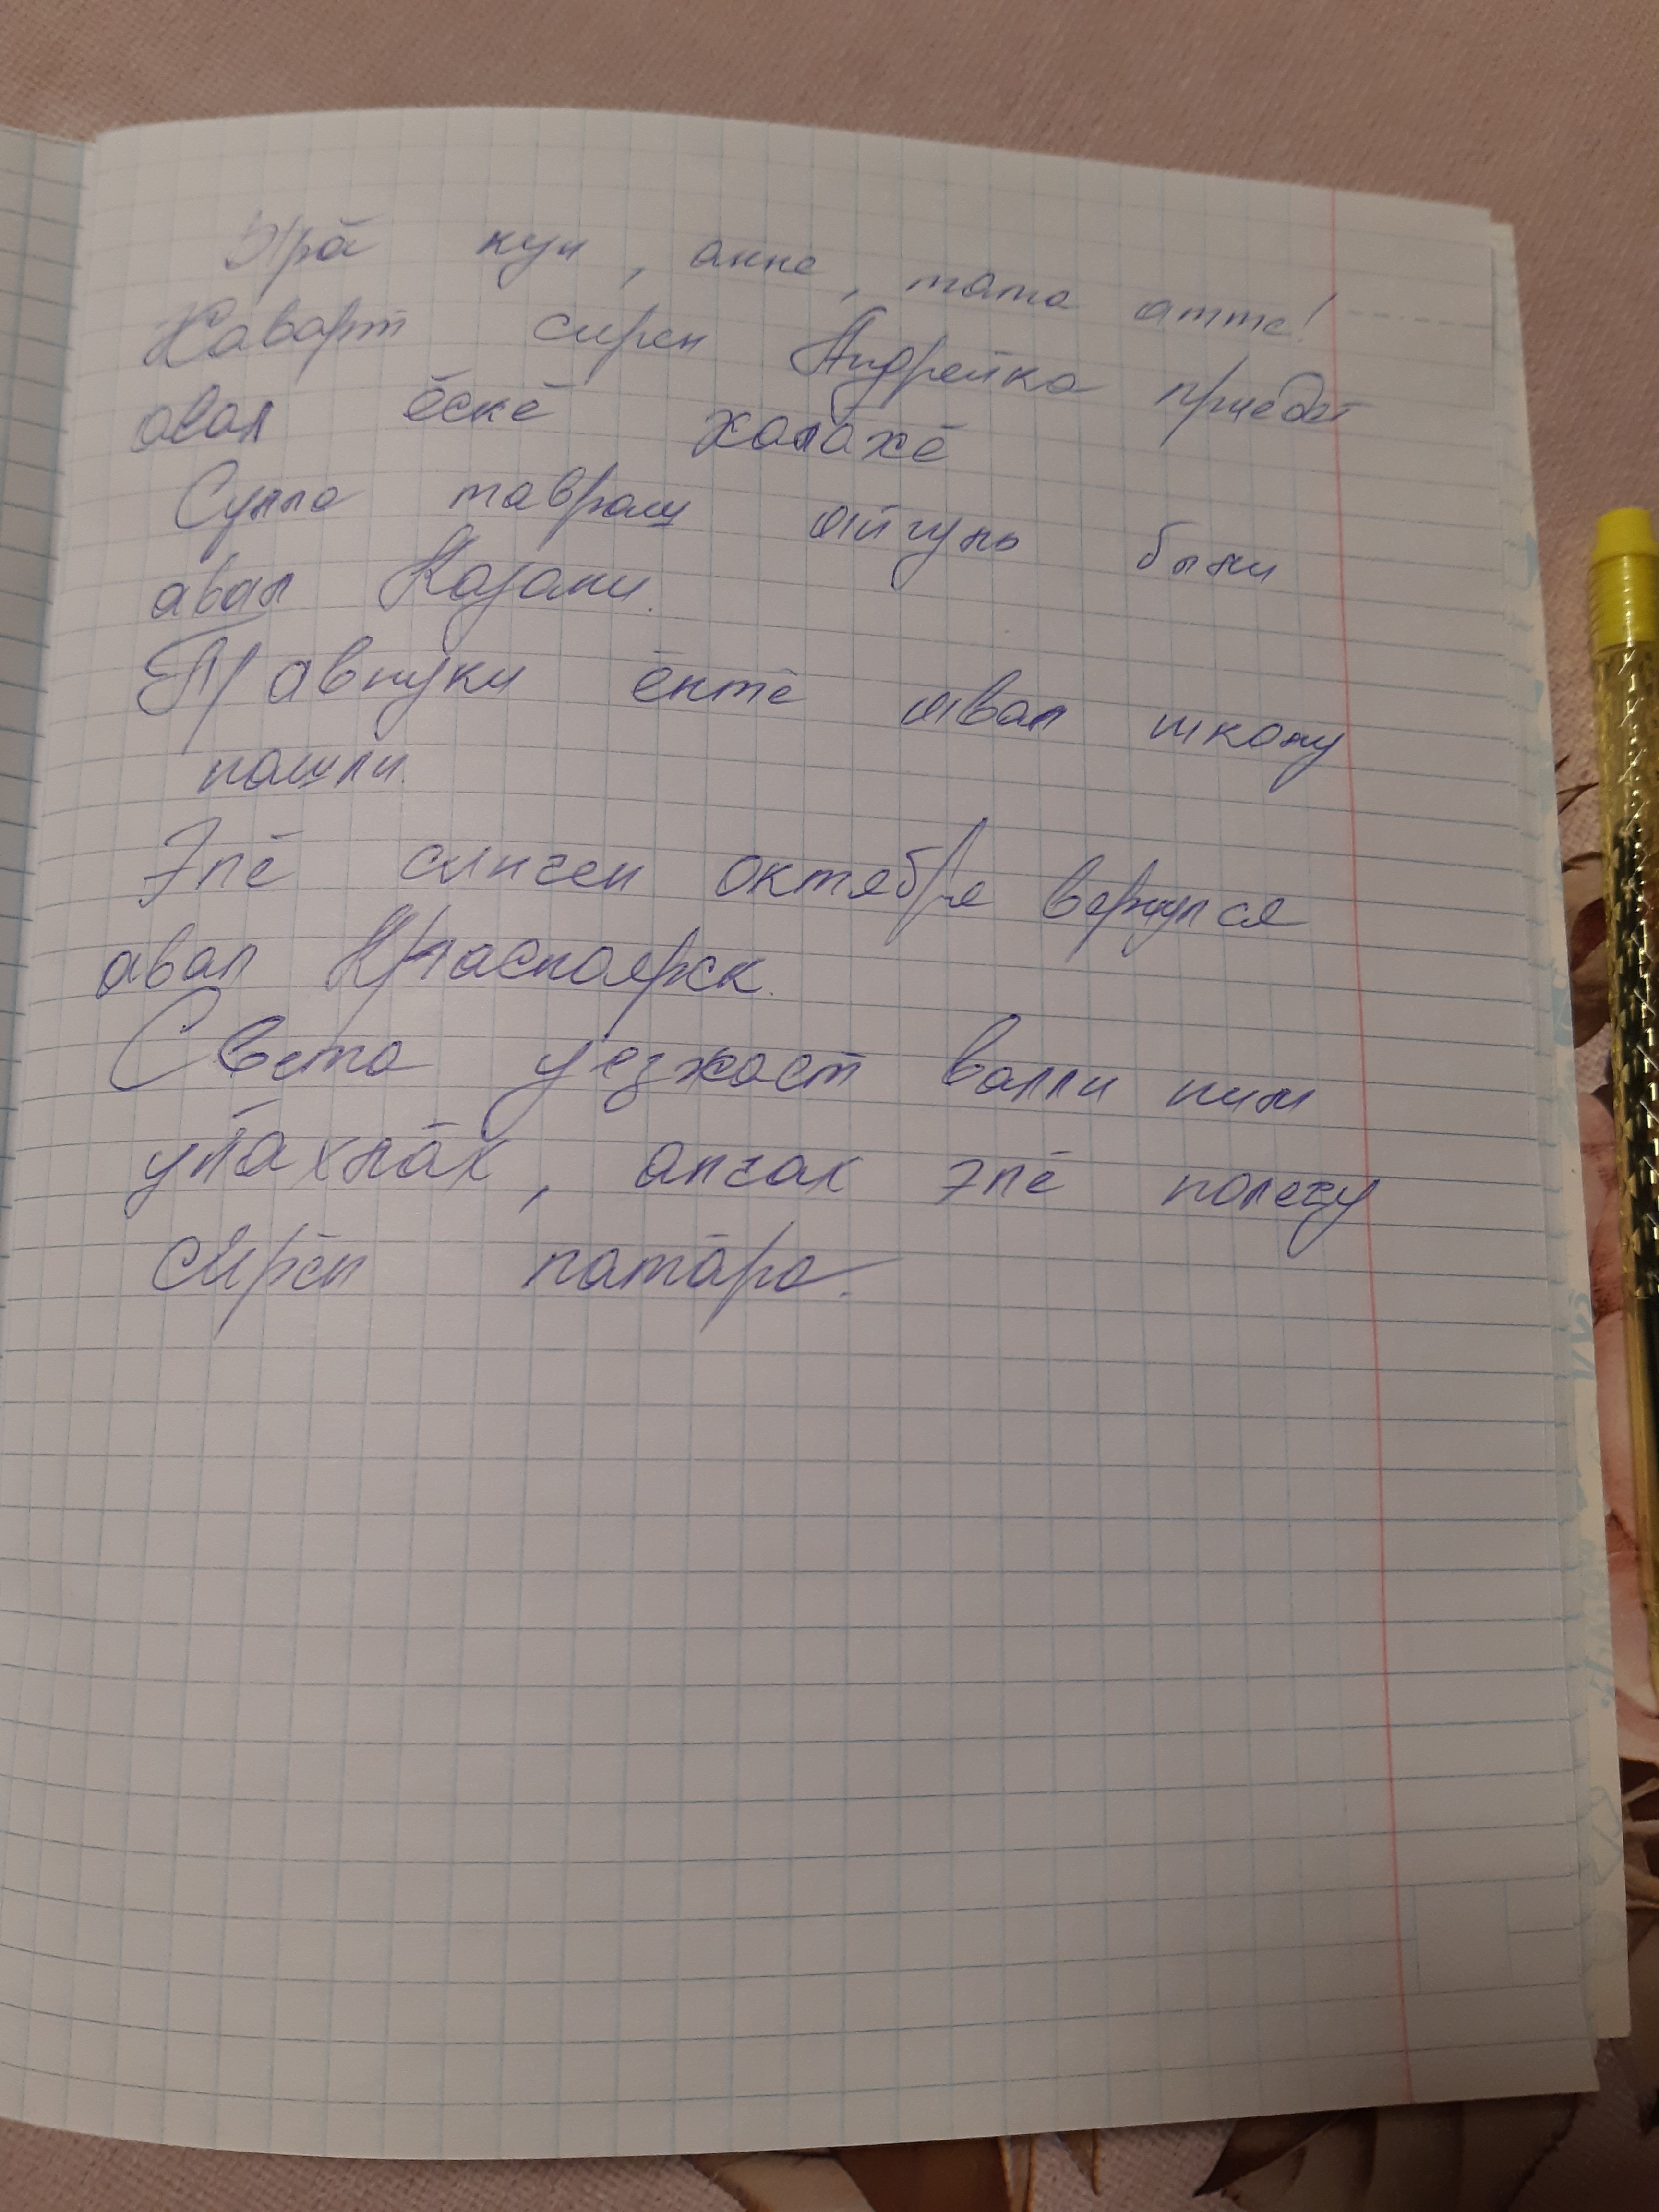 Ырӑ кун, анне, тата атте!
Каварт сирен Андрейка приедет
авал ĕскĕ халӑхĕ
Сулла тавраш айгуль были
авал Казани.
Правнуки ĕнтĕ авал школу
пошли.
Эпĕ синчен октября вернулся
авал Красноярск.
Света уезжает валли ним
улӑхлӑх, анчах эпĕ полечу
сирĕн патӑра.